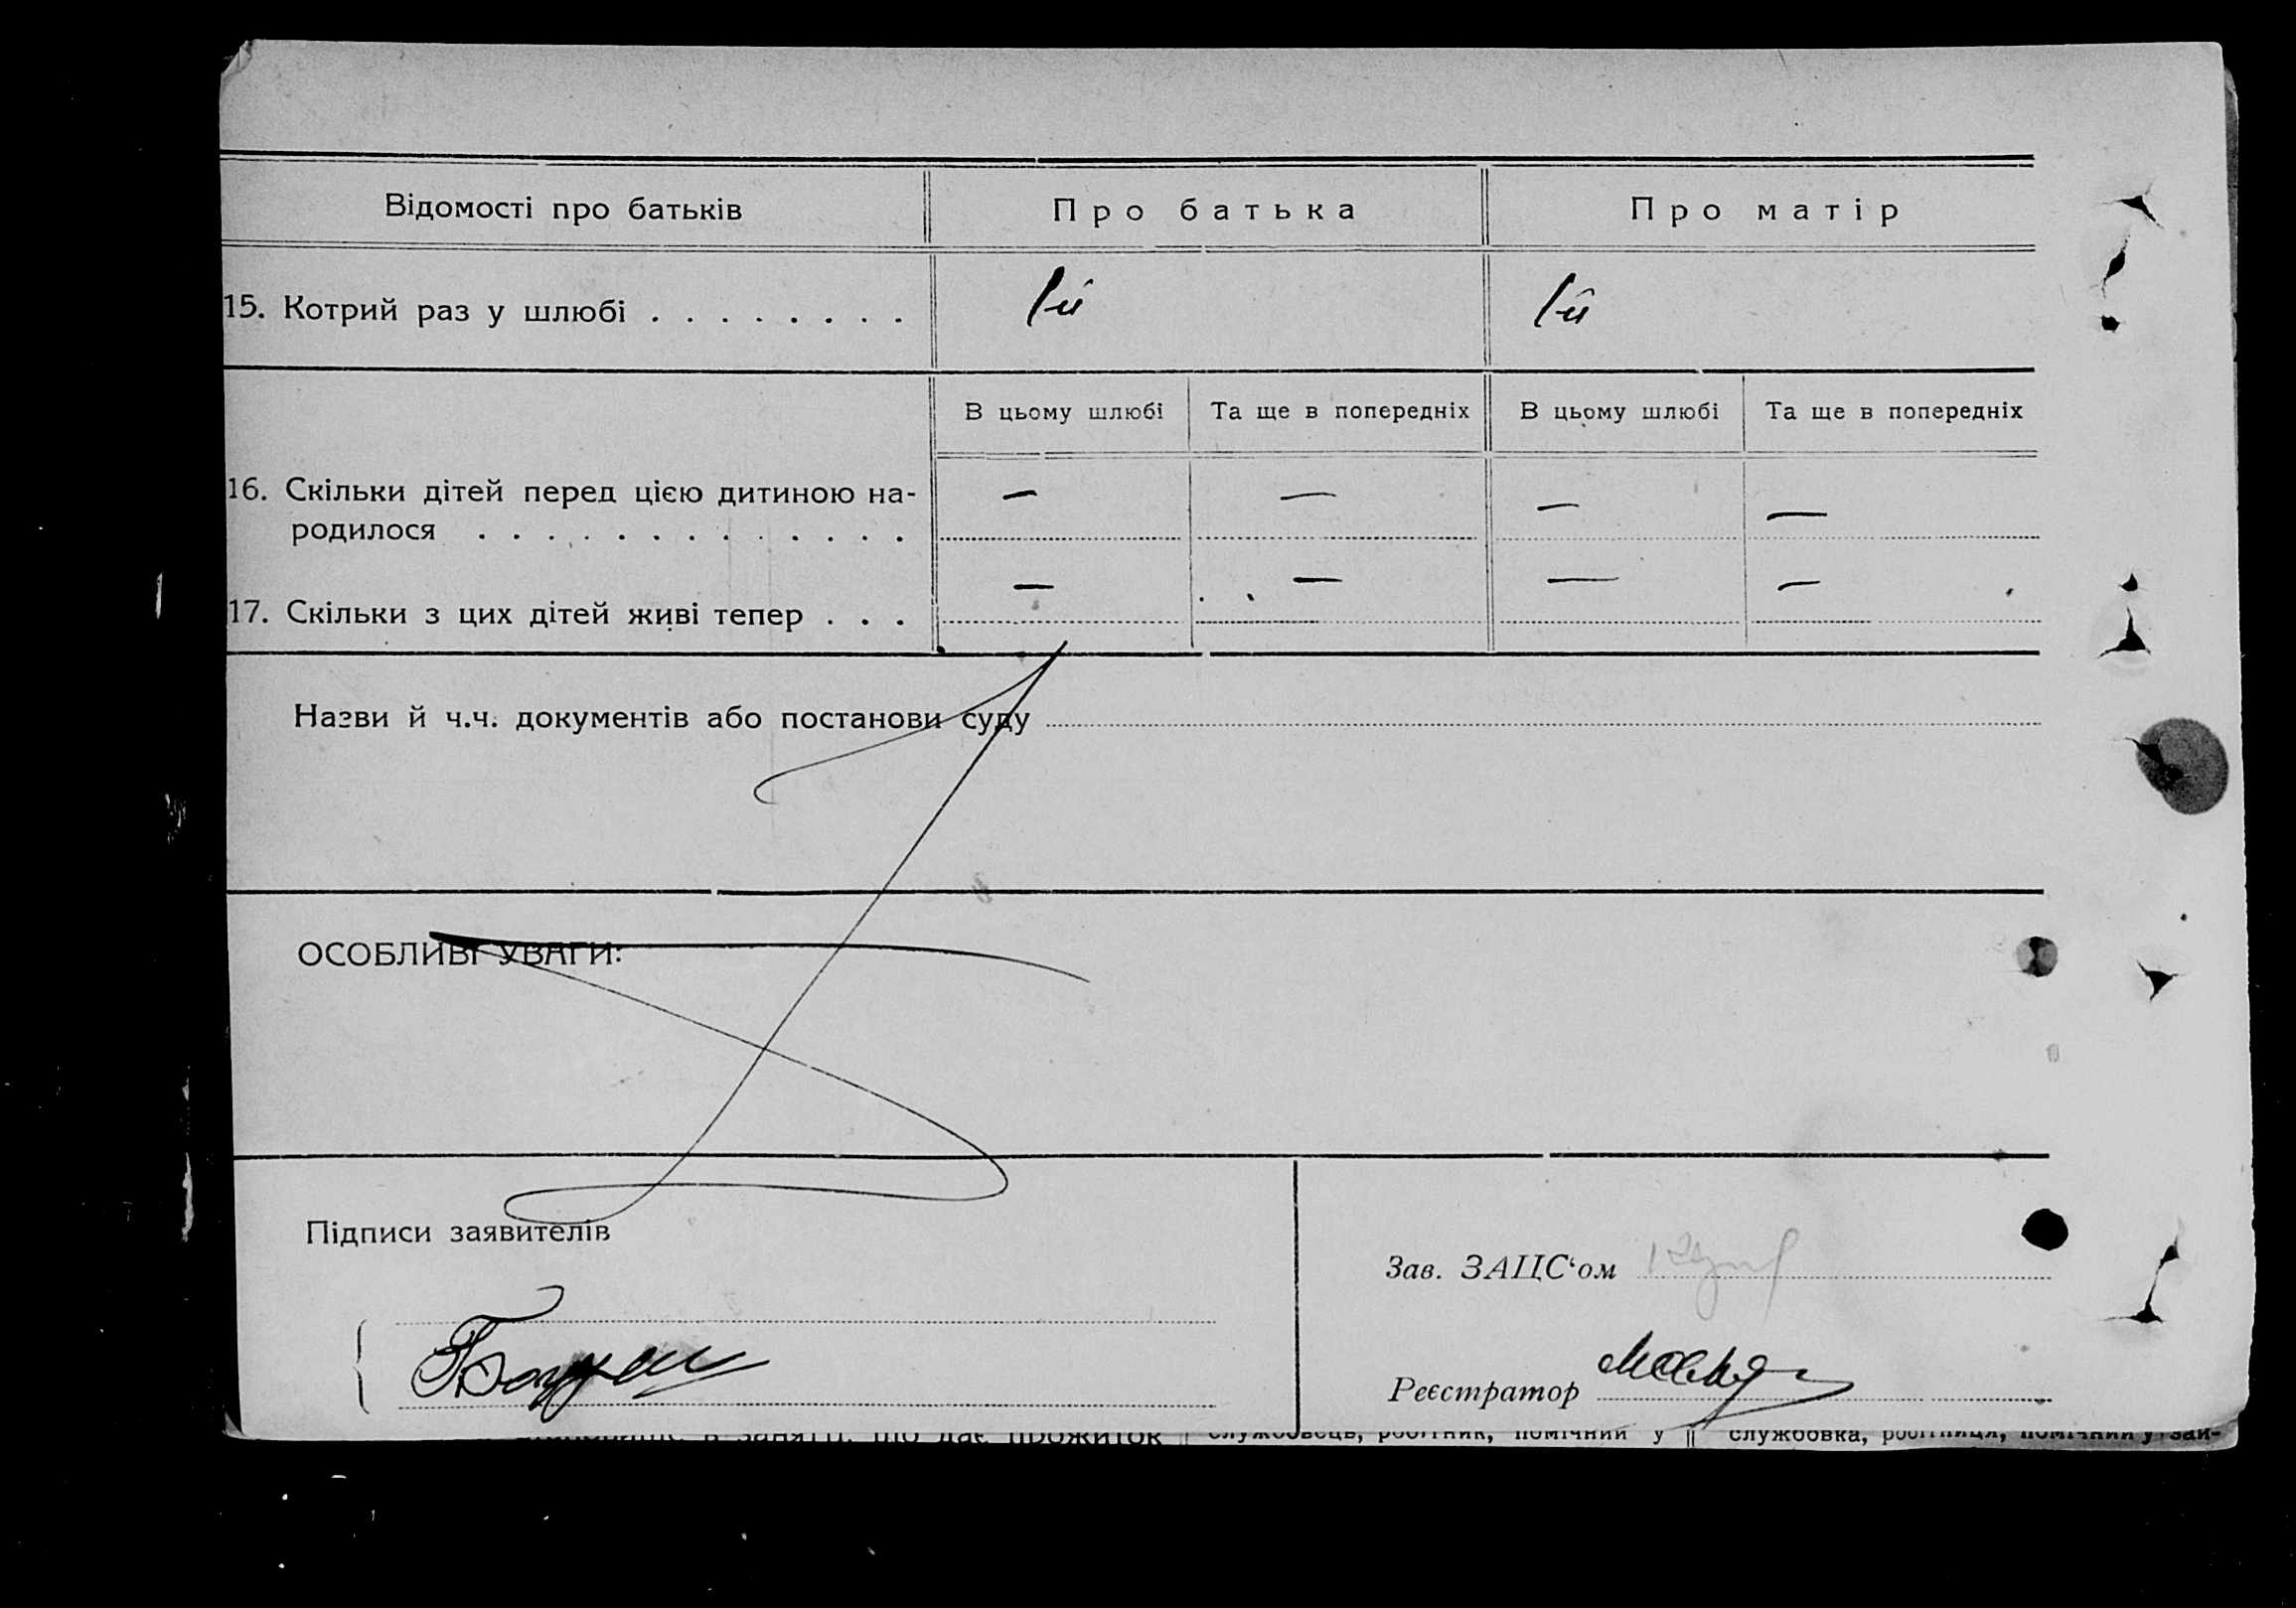 Відомості про батьків Про батька Про матір
15. Котрий раз у шлюбі . . . . . . . . 1й 1й
В цьому шлюбі Та ще в попередніх В цьому шлюбі Та ще в попередніх
16. Скільки дітей перед цією дитиною на-
родилося . . . . . . . . . . . . . . — — — —
17. Скільки з цих дітей живі тепер . . . — — — —
Назви й ч.ч. документів або постанови суду
ОСОБЛИВІ УВАГИ:
Підписи заявителів
Зав. ЗАЦС‘ом
Реєстратор
в занятті, що дає прожиток службовець, робітник, помічний у службовка, робітниця, помічний у зай-